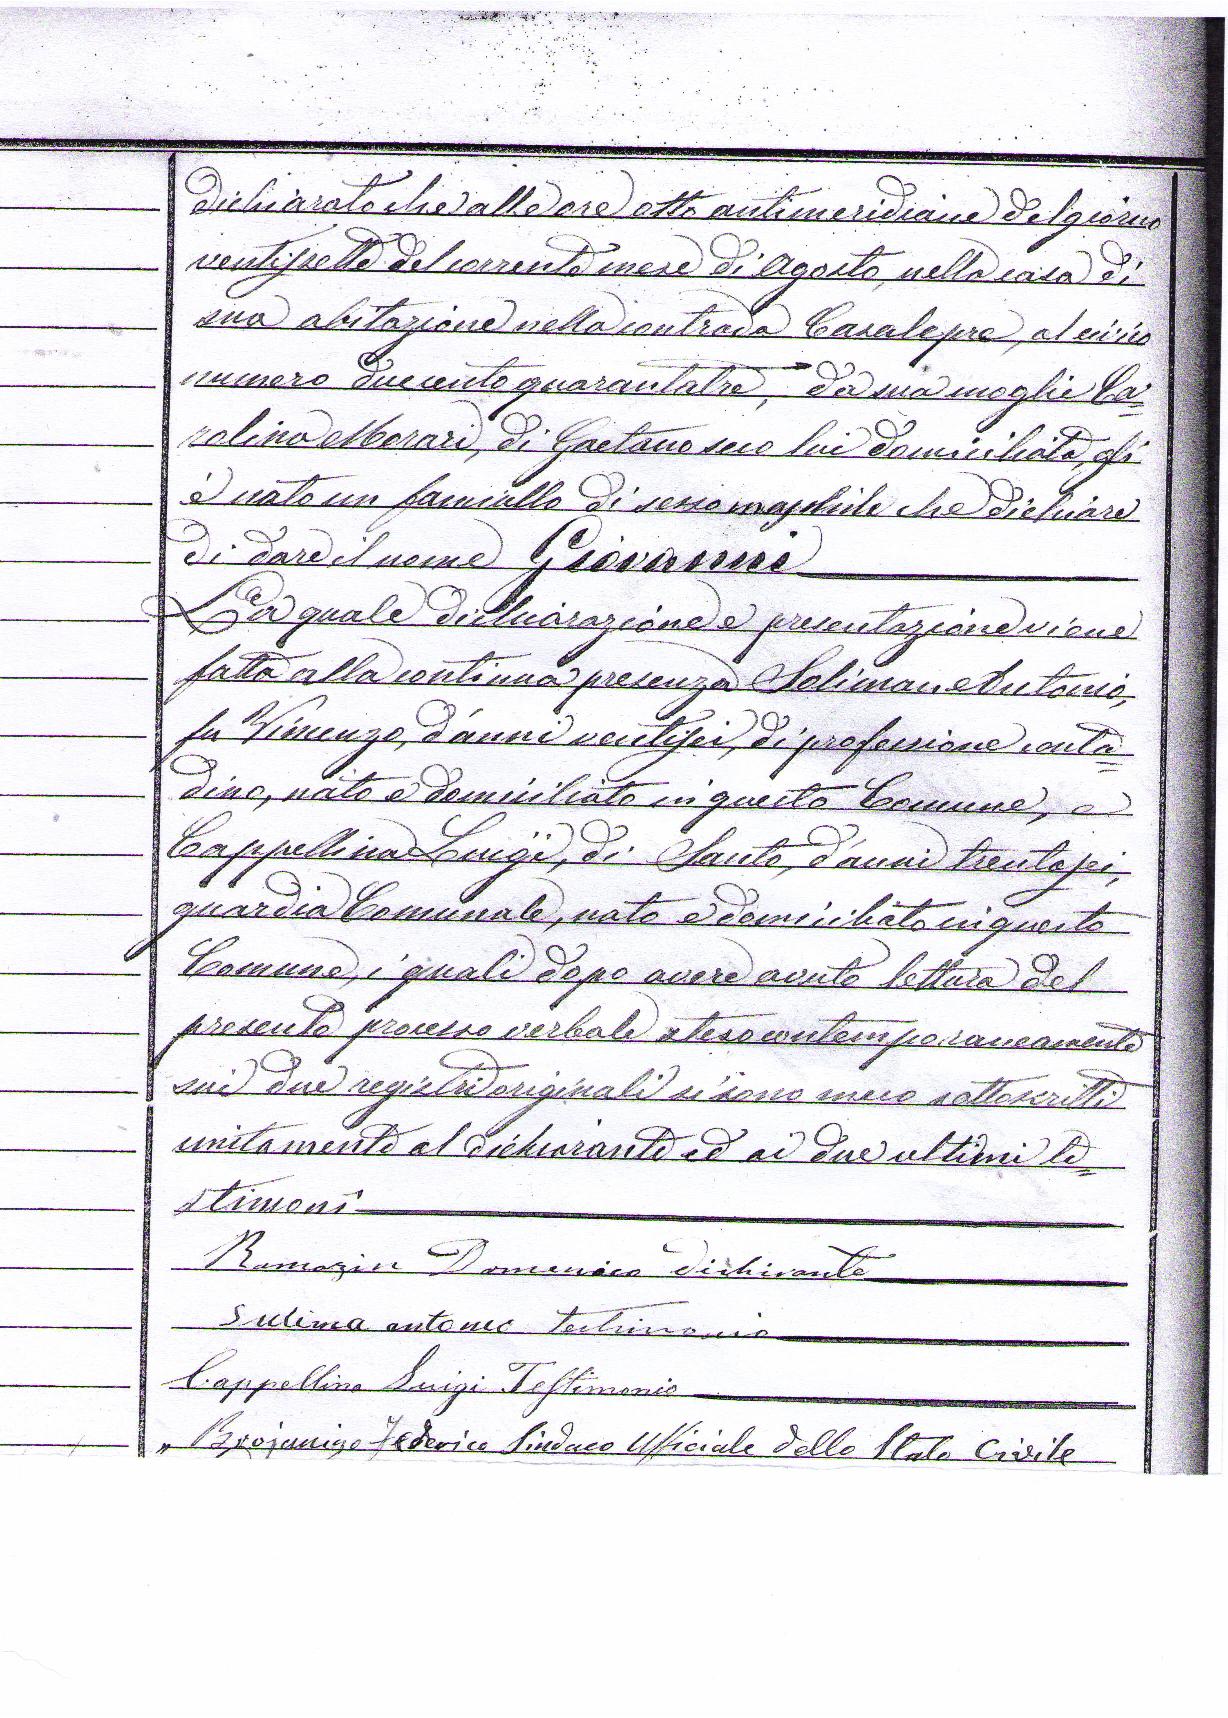 dichiarato che alle ore otto antimeridiane del giorno
ventisette del corrente mese di Agosto, nella casa di
sua abitazione nella contrada Casalepre, al civico
numero duecentoquarantatre, da sua moglie Ca=
rolina Morari, di Gaetano seco lui domiciliata, gli
è nato un fanciullo di sesso maschile che dichiara
di dare il nome Giovanni
La quale dichiarazione e presentazione viene
fatta alla continua presenza Soliman Antonio,
fu Vincenzo, d'anni ventisei, di professione conta=
dino, nato e domiciliato in questo Comune, e
Cappellina Luigi, di Santo, d'anni trentasei,
guardia Comunale, nato e domiciliato in questo
Comune, i quali dopo avere avuto lettura del
presente processo verbale steso contemporaneamente
sui due registri originali si sono meco sottoscritti
unitamente al dichiarante ed ai due ultimi te=
stimoni
Ramazin Domenico dichirante
antonio testimonio
Cappellina Luigi Testimonio
" Brojanigo Federico Sindaco Ufficiale dello Stato Civile